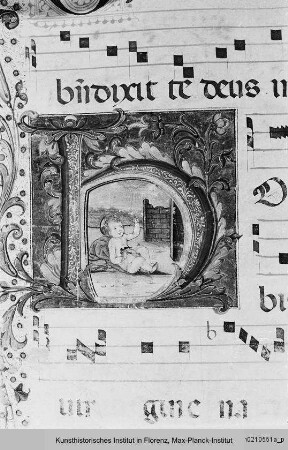 bn̄dixit te deus in
H
D
bu
uir gine na
Kunsthistorisches Institut in Florenz, Max-Planck-Institut